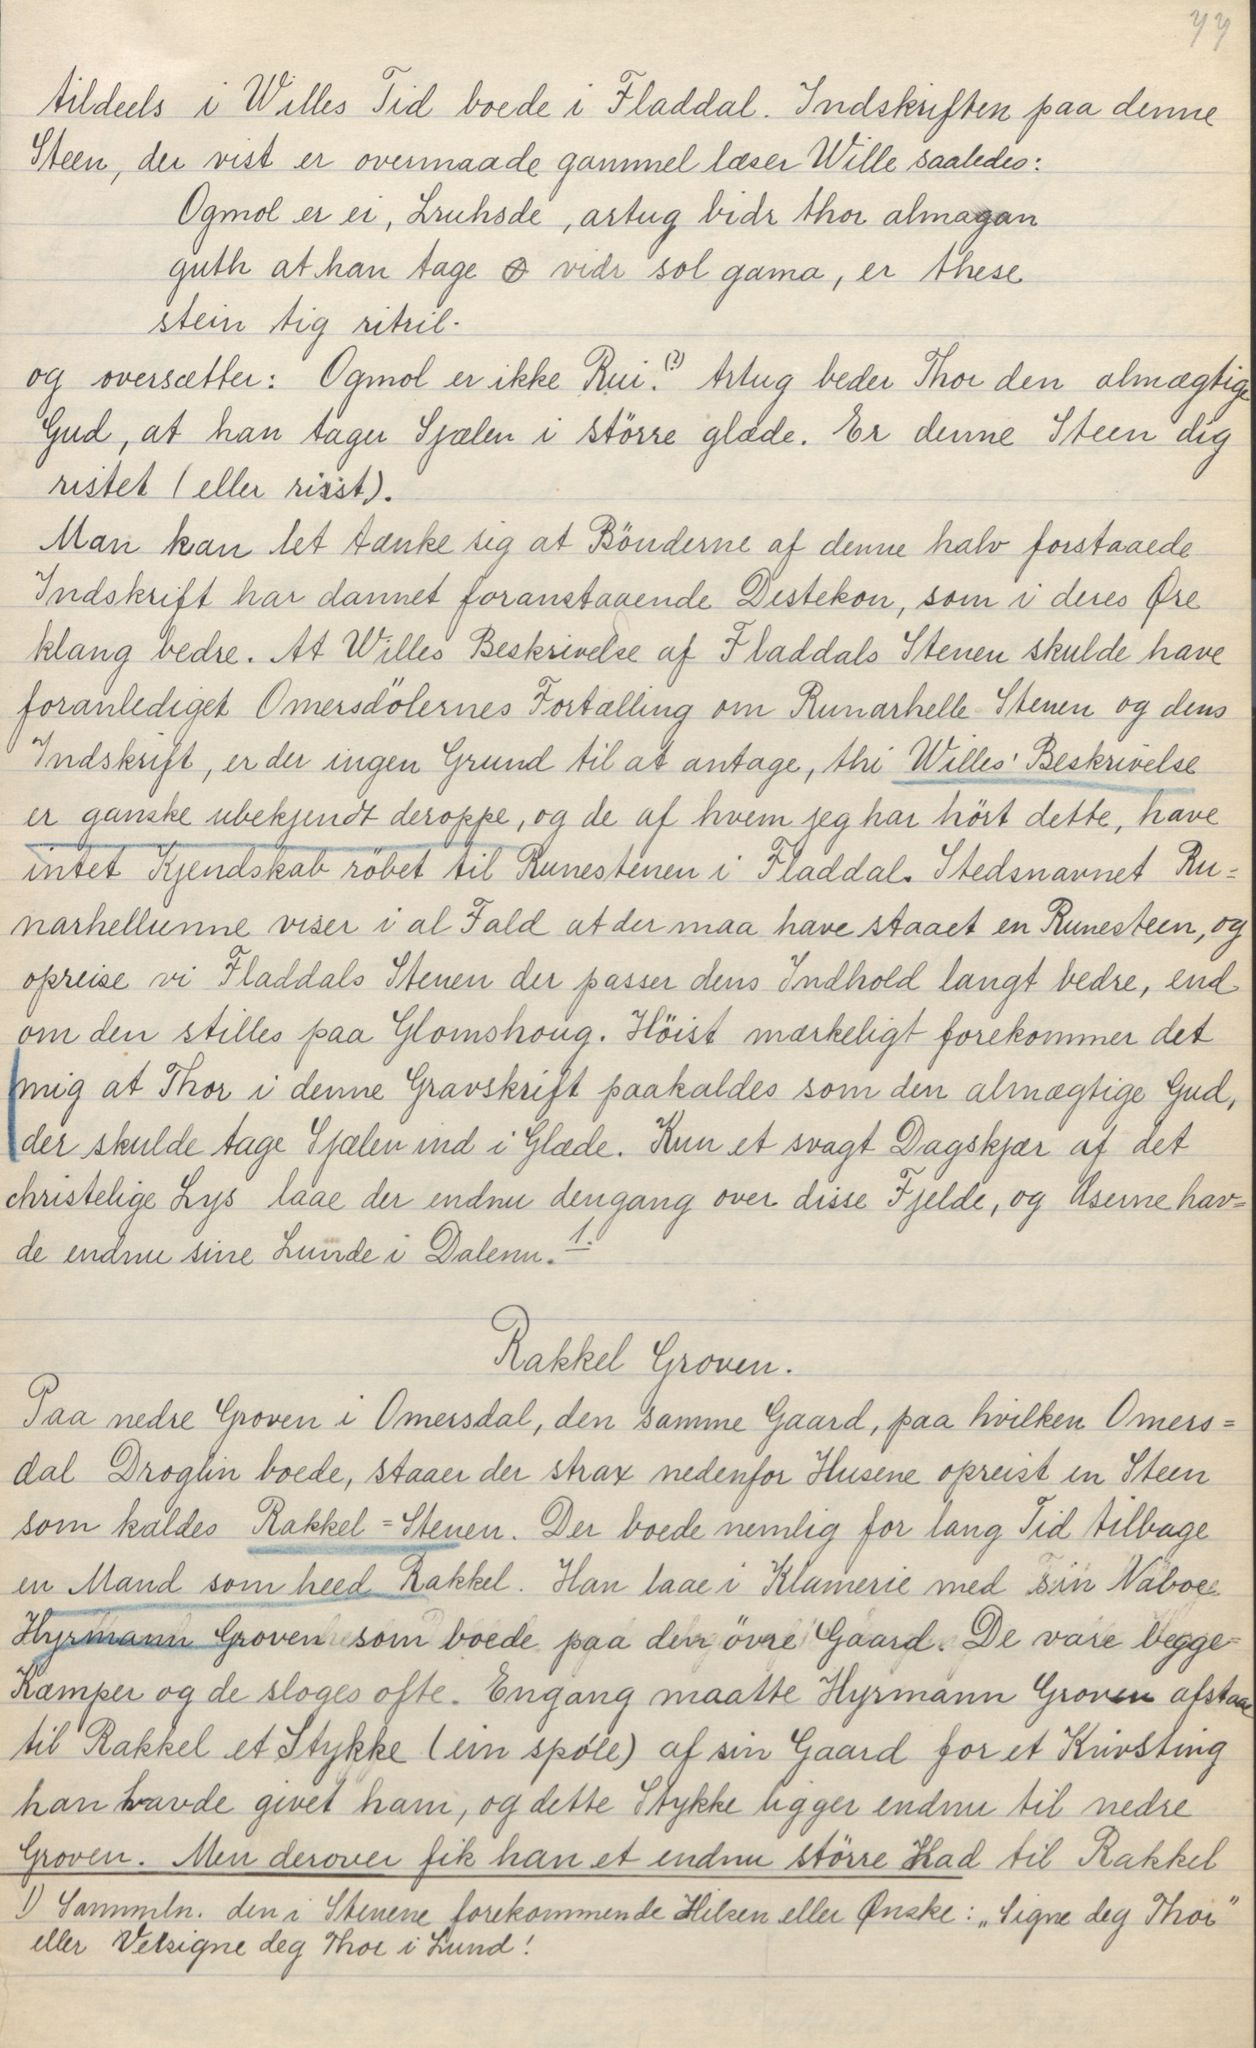 77
tildeels i Willes Tid boede i Fladdal. Indskriften paa denne
Steen, der vist er overmaade gammel læser Wille saaledes:
Ogmol er ei, Lruhsde, artug bidr thor almagan
guth at han tage vidr sol gama, er these
stein tig ritril.
og oversætter: Ogmol er ikke Rui.(?) Artug beder Thor den almægtige
Gud, at han tager Sjælen i större glæde. Er denne Steen dig
ristet (eller risst).
Man kan let tænke sig at Bönderne af denne halv forstaaede
Indskrift har dannet foranstaaende Destekon, som i deres Øre
klang bedre. At Willes Beskrivelse af Fladdals Stenen skulde have
foranlediget Omersdölernes Fortælling om Runarhelle Stenen og dens
Indskrift, er der ingen Grund til at antage, thi Willes' Beskrivelse
er ganske ubekjendt deroppe, og de af hvem jeg har hört dette, have
intet Kjendskab röbet til Runestenen i Fladdal. Stedsnavnet Ru=
narhellunne viser i al Fald at der maa have staaet en Runesteen, og
opreise vi Fladdals Stenen der passer dens Indhold langt bedre, end
om den stilles paa Glomshoug. Höist mærkeligt forekommer det
mig at Thor i denne Gravskrift paakaldes som den almægtige Gud,
der skulde tage Sjælen ind i Glæde. Kun et svagt Dagskjær af det
christelige Lys laae der endnu dengang over disse Fjelde, og Aserne hav=
de endnu sine Lunde i Dalenn. 1.
Rakkel Groven.
Paa nedre Groven i Omersdal, den samme Gaard, paa hvilken Omers=
dal Droglin boede, staaer der strax nedenfor Husene opreist en Steen
som kaldes Rakkel=Stenen. Der boede nemlig for lang Tid tilbage
en Mand som heed Rakkel. Han laae i Klamerie med sin Naboe
Hyrmann Groven som boede paa den övre Gaard. De vare begge
Kæmper og de sloges ofte. Engang maatte Hyrmann Groven afstaae
til Rakkel et Stykke (ein spóle) af sin Gaard for et Knivsting
han havde givet ham, og dette Stykke ligger endnu til nedre
Groven. Men derover fik han et endnu större Had til Rakkel
1) Sammeln. den i Stenene forekommende Hilsen eller Ønske: „Signe deg Thor"
eller Velsigne deg Thor i Lund!